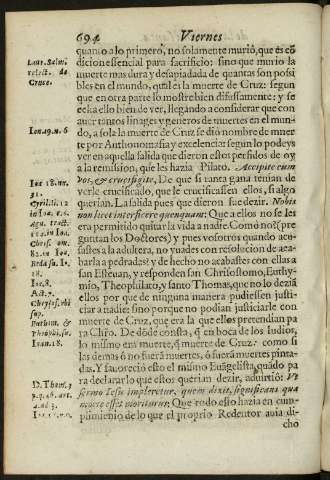 694 Viernes
quanto a lo primero, no solamente murió, que es cõ
dicion essencial para sacrificio: sino que murio la
muerte mas dura y desapiadada de quantas son possi
bles en el mundo, qual es la muerte de Cruz: segun
que en otra parte lo mostre bien difusamente: y se
echa ello bien de ver, llegando a considerar que con
auer tantos linages y generos de muertes en el mun-
do, a sola la muerte de Cruz se dió nombre de muer
te por Authonomasia y excelencia: segun lo podeys
ver en aquella salida que dieron estos perfidos de oy
a la remission, que les hazia Pilato. Accipite eum
vos, & crucifigite, De que si tanta gana tenian de
verle crucificado, que le crucificassen ellos, si algo
querian. La salida pues que dieron fue dezir. Nobis
non licet interficere quenquam: Que a ellos no se les
era permitido quitar la vida a nadie. Como no? (pre
guntan los Doctores) Y pues vosotros quando acu-
sastes a la adultera, no yuades con resolucion de aca-
barla a pedradas? y de hecho no acabastes con ellas a
san Esteuan, y responden san Chrisostomo, Euthy-
mio, Theophilato, y santo Thomas, que no lo dezia
ellos por que de ninguna manera pudiessen justi-
ciar a nadie: sino porque no podian justiciarle con
muerte de Cruz, que era la que ellos pretendian pa
ra Chro. De dõde consta, q̃ en boca de los Iudios,
lo mismo era muerte, q̃ muerte de Cruz: como si
las demas ó no fuerã muertes, ó fuerã muertes pinta-
das. Y fauoreciò esto el mismo Euãgelista, quãdo pa
ra declarar lo que estos querian dezir, aduirtiò: Vt
sermo Iesu impleretur, quem dixit, significans qua
morte esset moriturus: Que todo esto hazia en cum-
plimiento de lo que el proprio Redentor auia di-
cho
relect. de
Cruce.
Ioan. 19. n. 6
Ioa. 18. nu.
31.
Cyrill. li. 12
in Ioa. c. 6.
tract.
in Ioa.
Chrisf. om.
82. in Ioa.
Beda su. Io.
18.
Ioa. 8.
Act. 7.
sup.
Theophi. su.
Ioan. 18.
D. Thom. 3
p. q. 46. art.
4. ad 3.